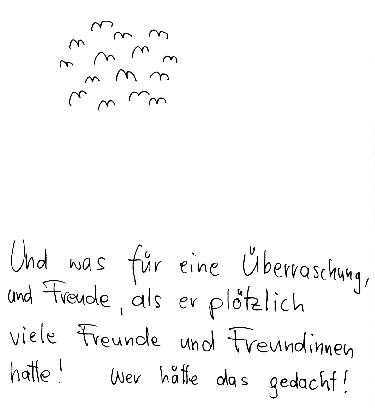 Und was für eine Überraschung,
und Freude, als er plötzlich
viele Freunde und Freundinnen
hatte! Wer hätte das gedacht!